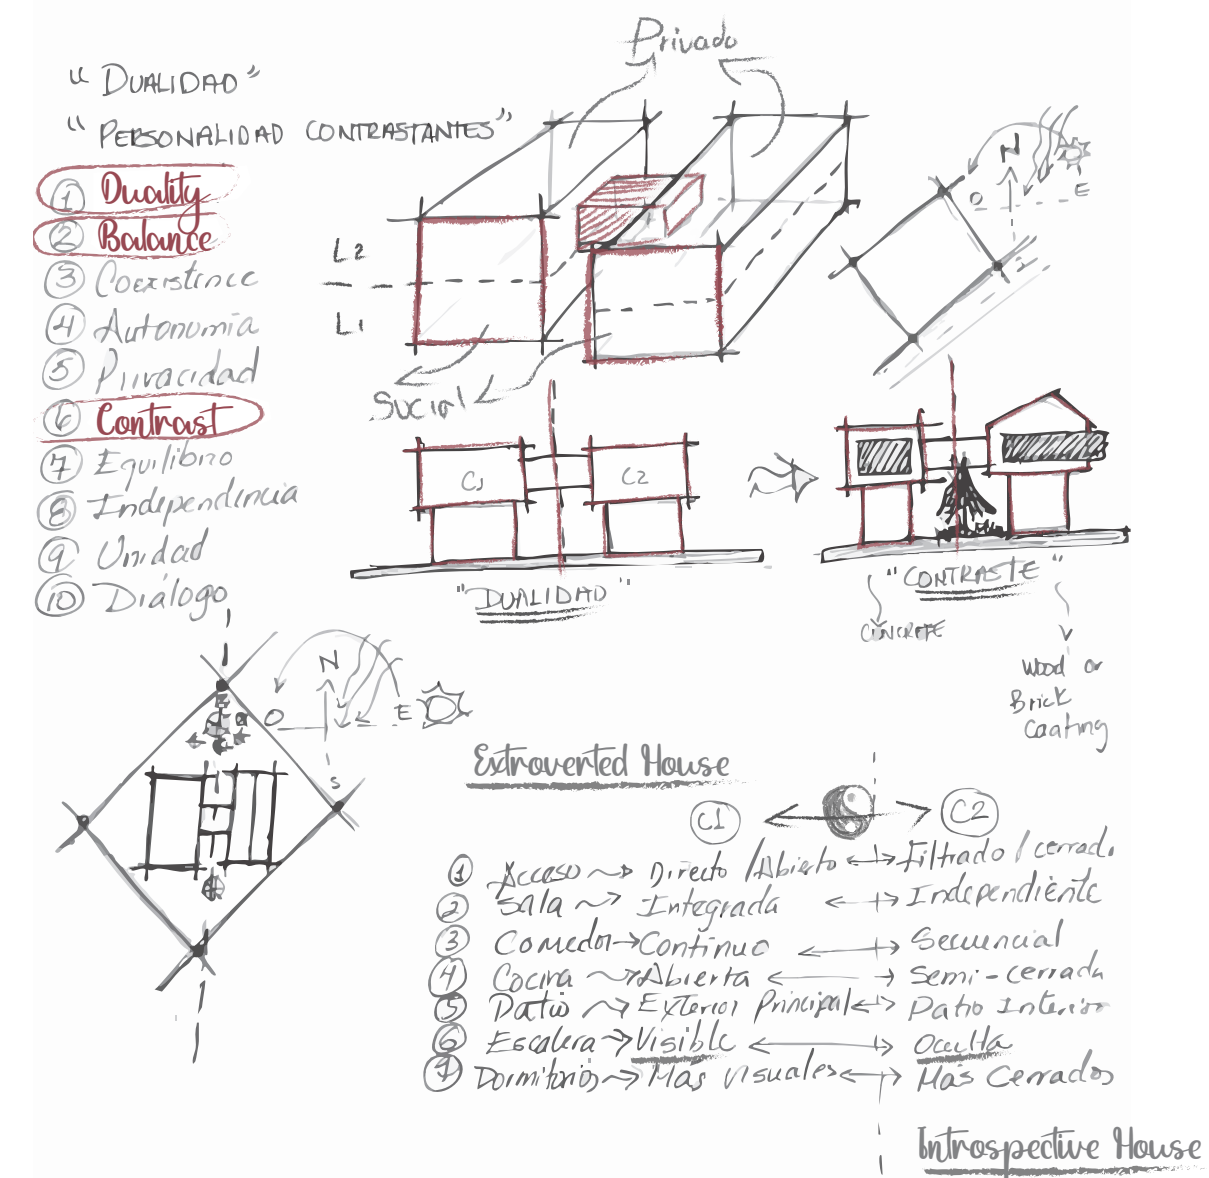 Privado
"DUALIDAD"
"PERSONALIDAD CONTRASTANTES"
1 Duality
2 Balance
3 Coexistence
4 Autonomía
5 Privacidad
6 Contrast
7 Equilibrio
8 Independencia
9 Unidad
10 Diálogo
L2
L1
Social
N
O
E
C1
C2
"DUALIDAD"
"CONTRASTE"
CONCRETE
Wood or
Brick
Coating
N
O
E
S
Extroverted House
C1
C2
1 Acceso → Directo / Abierto ↔ Filtrado / cerrado
2 Sala → Integrada ↔ Independiente
3 Comedor → Continuo ↔ Secuencial
4 Cocina → Abierta ↔ Semi-cerrada
5 Patio → Exterior Principal ↔ Patio Interior
6 Escalera → Visible ↔ Oculta
7 Dormitorios → Más visuales ↔ Más Cerrados
Introspective House